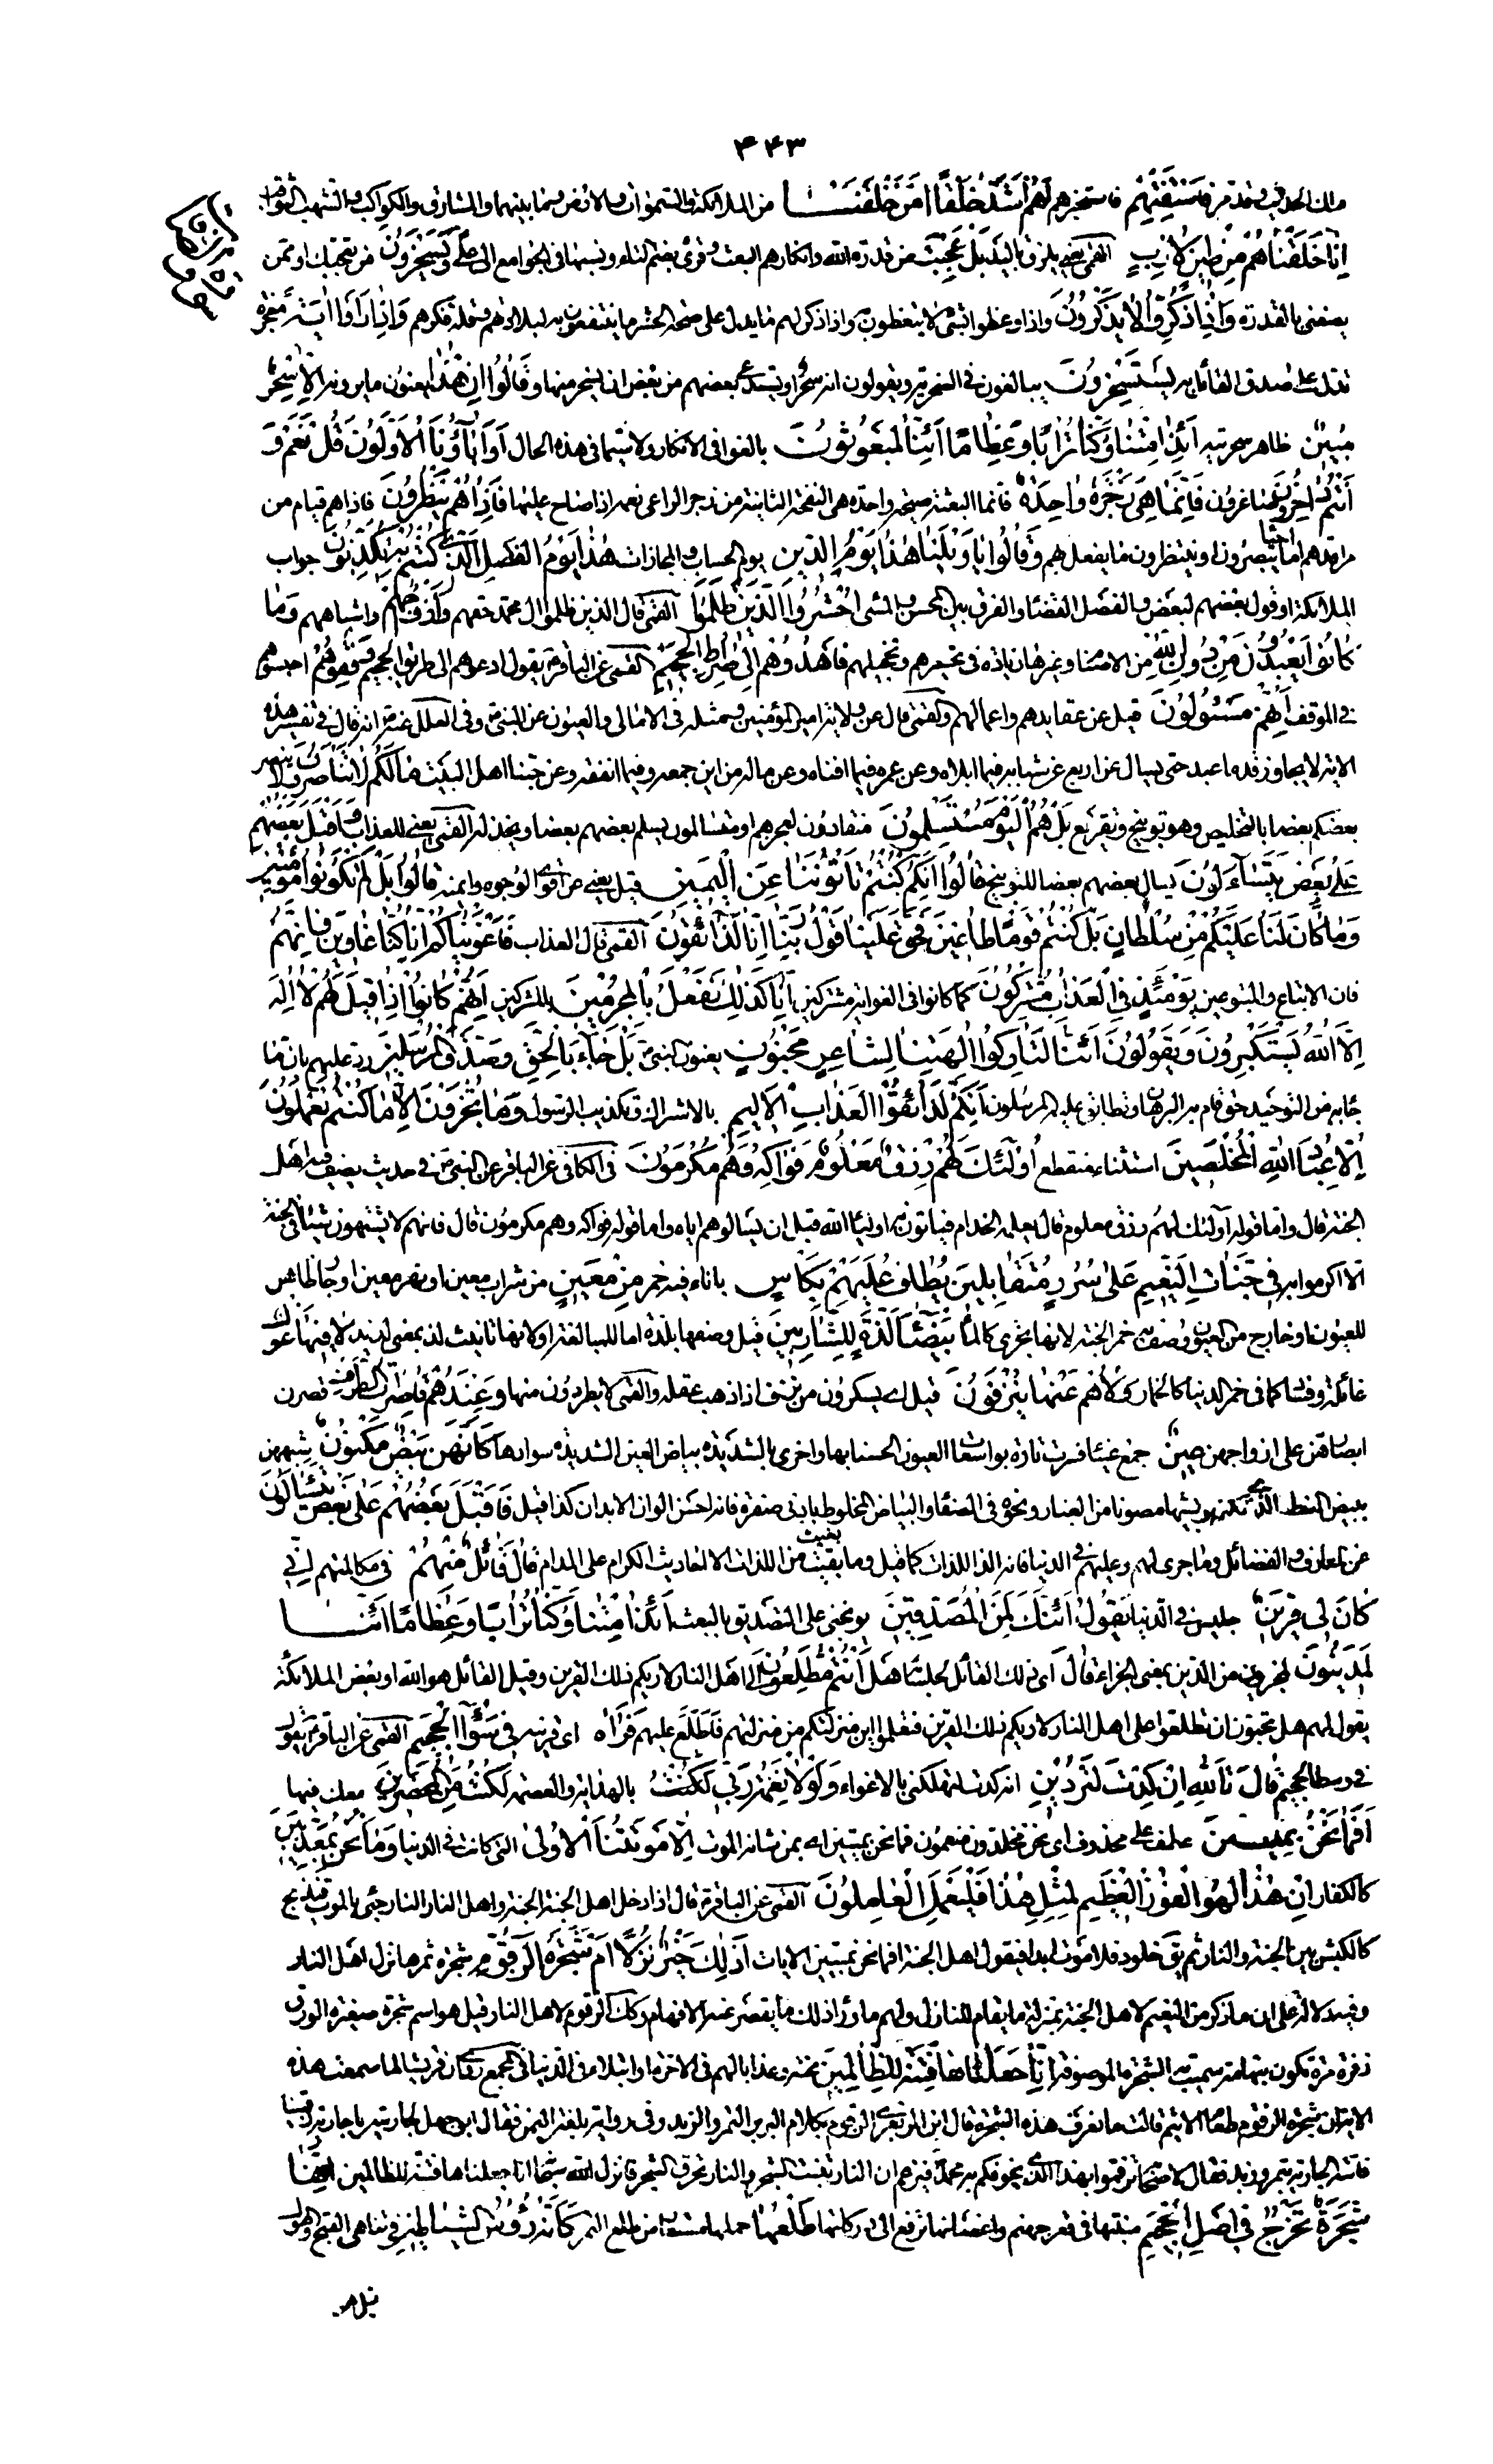 ۴۴۳
فاستفتهم فاستخبرهم أَهُمْ أَشَدُّ خَلْقًا أَمْ مَنْ خَلَقْنَا من الملائكة والسموات والارض وما بينهما والمشارق والكواكب والشهب الثواقب
إِنَّا خَلَقْنَاهُمْ مِنْ طِينٍ لَازِبٍ القمى يعنى يلزق باليد بَلْ عَجِبْتَ من قدرة الله وانكارهم البعث وقرئ بضم التاء ونسبها فى الجوامع الى على وَيَسْخَرُونَ من تعجبك او ممن
يصفنى بالقدرة وَإِذَا ذُكِّرُوا لَا يَذْكُرُونَ واذا وعظوا بشئ لا يتعظون به او اذا ذكر لهم ما يدل على صحة الحشر ما ينتفعون به لبلادتهم وقلة فكرهم وَإِذَا رَأَوْا آيَةً معجزة
تدل على صدق القائل به يَسْتَسْخِرُونَ يبالغون فى السخرية ويقولون انه سحر او يستدعى بعضهم من بعض ان يسخر منها وَقَالُوا إِنْ هَذَا يعنون ما يرونه إِلَّا سِحْرٌ
مُبِينٌ ظاهر سحريته أَئِذَا مِتْنَا وَكُنَّا تُرَابًا وَعِظَامًا أَئِنَّا لَمَبْعُوثُونَ بالغوا فى الانكار ولا سيما فى هذه الحال أَوَآبَاؤُنَا الْأَوَّلُونَ قُلْ نَعَمْ وَ
أَنْتُمْ دَاخِرُونَ صاغرون فَإِنَّمَا هِيَ زَجْرَةٌ وَاحِدَةٌ فانما البعثة صيحة واحدة هى النفخة الثانية من زجر الراعى غنمه اذا صاح عليها فَإِذَا هُمْ يَنْظُرُونَ فاذا هم قيام من
مراقدهم احياء يبصرون او ينتظرون ما يفعل بهم وَقَالُوا يَا وَيْلَنَا هَذَا يَوْمُ الدِّينِ يوم الحساب والمجازات هَذَا يَوْمُ الْفَصْلِ الَّذِي كُنْتُمْ بِهِ تُكَذِّبُونَ جواب
الملائكة او قول بعضهم لبعض والفصل القضاء والفرق بين المحسن والمسئ احْشُرُوا الَّذِينَ ظَلَمُوا القمى قال الذين ظلموا ال محمد حقهم وَأَزْوَاجَهُمْ واشباههم وَمَا
كَانُوا يَعْبُدُونَ مِنْ دُونِ اللَّهِ من الاصنام وغيرها زيادة فى تحسيرهم وتخجيلهم فَاهْدُوهُمْ إِلَى صِرَاطِ الْجَحِيمِ القمى عن الباقر يقول ادعوهم الى طريق الجحيم وَقِفُوهُمْ احبسوهم
فى الموقف إِنَّهُمْ مَسْئُولُونَ قيل عن عقايدهم واعمالهم والقمى قال عن ولاية امير المؤمنين ومثله فى الامالى والعيون عن النبى وفى العلل عنه انه قال فى تفسير هذه
الاية لا يجاوز قدما عبد حتى يسال عن اربع عن شبابه فيما ابلاه وعن عمره فيما افناه وعن ماله من اين جمعه وفيما انفقه وعن حبنا اهل البيت مَا لَكُمْ لَا تَنَاصَرُونَ لا ينصر
بعضكم بعضا بالتخليص وهو توبيخ وتقريع بَلْ هُمُ الْيَوْمَ مُسْتَسْلِمُونَ منقادون لعجزهم او متسالمون يسلم بعضهم بعضا ويخذله القمى يعنى للعذاب وَأَقْبَلَ بَعْضُهُمْ
عَلَى بَعْضٍ يَتَسَاءَلُونَ يسال بعضهم بعضا للتوبيخ قَالُوا إِنَّكُمْ كُنْتُمْ تَأْتُونَنَا عَنِ الْيَمِينِ قيل يعنى عن اقوى الوجوه وايمنه قَالُوا بَلْ لَمْ تَكُونُوا مُؤْمِنِينَ
وَمَا كَانَ لَنَا عَلَيْكُمْ مِنْ سُلْطَانٍ بَلْ كُنْتُمْ قَوْمًا طَاغِينَ فَحَقَّ عَلَيْنَا قَوْلُ رَبِّنَا إِنَّا لَذَائِقُونَ القمى قال العذاب فَأَغْوَيْنَاكُمْ إِنَّا كُنَّا غَاوِينَ فَإِنَّهُمْ
فان الاتباع والمتبوعين يَوْمَئِذٍ فِي الْعَذَابِ مُشْتَرِكُونَ كما كانوا فى الغواية مشتركين إِنَّا كَذَلِكَ نَفْعَلُ بِالْمُجْرِمِينَ بالمشركين إِنَّهُمْ كَانُوا إِذَا قِيلَ لَهُمْ لَا إِلَهَ
إِلَّا اللَّهُ يَسْتَكْبِرُونَ وَيَقُولُونَ أَئِنَّا لَتَارِكُوا آلِهَتِنَا لِشَاعِرٍ مَجْنُونٍ يعنون النبى بَلْ جَاءَ بِالْحَقِّ وَصَدَّقَ الْمُرْسَلِينَ رد عليهم بان ما
جاء به من التوحيد حق قام به البرهان وتطابق عليه المرسلون إِنَّكُمْ لَذَائِقُوا الْعَذَابِ الْأَلِيمِ بالاشراك وتكذيب الرسول وَمَا تُجْزَوْنَ إِلَّا مَا كُنْتُمْ تَعْمَلُونَ
إِلَّا عِبَادَ اللَّهِ الْمُخْلَصِينَ استثناء منقطع أُولَئِكَ لَهُمْ رِزْقٌ مَعْلُومٌ فَوَاكِهُ وَهُمْ مُكْرَمُونَ فى الكافى عن الباقر عن النبى فى حديث يصف فيه اهل
الجنة قال واما قوله اولئك لهم رزق معلوم قال يعلمه الخدام فياتون به اولياء الله قبل ان يسالوهم اياه واما قوله فواكه وهم مكرمون قال فانهم لا يشتهون شيئا فى الجنة
الا اكرموا به فِي جَنَّاتِ النَّعِيمِ عَلَى سُرُرٍ مُتَقَابِلِينَ يُطَافُ عَلَيْهِمْ بِكَأْسٍ باناء فيه خمر مِنْ مَعِينٍ من شراب معين او نهر معين اى جار ظاهر
للعيون او خارج من العيون وصف به خمر الجنة لانها تجرى كالماء بَيْضَاءَ لَذَّةٍ لِلشَّارِبِينَ قيل وصفها بلذة اما للمبالغة او لانها تانيث لذ بمعنى لذيذ لَا فِيهَا غَوْلٌ
غائلة وفساد كما فى خمر الدنيا كالخمار وَلَا هُمْ عَنْهَا يُنْزَفُونَ قيل اى يسكرون من نزف اذا ذهب عقله والقمى لا يطردون منها وَعِنْدَهُمْ قَاصِرَاتُ الطَّرْفِ قصرن
ابصارهن على ازواجهن عِينٌ جمع عيناء فسرت تارة بواسعات العيون لحسنها واخرى بالشديدة بياض العين الشديدة سوادها كَأَنَّهُنَّ بَيْضٌ مَكْنُونٌ شبههن
ببيض النعام الذى تكنه بريشها مصونا من الغبار ونحوه فى الصفاء والبياض المخلوط بادنى صفرة فانه احسن الوان الابدان كذا قيل فَأَقْبَلَ بَعْضُهُمْ عَلَى بَعْضٍ يَتَسَاءَلُونَ
عن المعارف والفضائل وما جرى لهم وعليهم فى الدنيا فانه الذ اللذات كما قيل وما بقيت من اللذات الا احاديث الكرام على المدام قَالَ قَائِلٌ مِنْهُمْ فى مكالمتهم إِنِّي
كَانَ لِي قَرِينٌ جليس فى الدنيا يَقُولُ أَئِنَّكَ لَمِنَ الْمُصَدِّقِينَ يوبخنى على التصديق بالبعث أَئِذَا مِتْنَا وَكُنَّا تُرَابًا وَعِظَامًا أَئِنَّا
لَمَدِينُونَ لمجزيون من الدين بمعنى الجزاء قَالَ اى ذلك القائل لجلسائه هَلْ أَنْتُمْ مُطَّلِعُونَ الى اهل النار لاريكم ذلك القرين وقيل القائل هو الله او بعض الملائكة
يقول لهم هل تحبون ان تطلعوا على اهل النار لاريكم ذلك القرين فتعلموا اين منزلتكم من منزلتهم فَاطَّلَعَ عليهم فَرَآهُ اى قرينه فِي سَوَاءِ الْجَحِيمِ القمى عن الباقر يقول
فى وسط الجحيم قَالَ تَاللَّهِ إِنْ كِدْتَ لَتُرْدِينِ انه كدت لتهلكنى بالاغواء وَلَوْلَا نِعْمَةُ رَبِّي بالهداية والعصمة لَكُنْتُ مِنَ الْمُحْضَرِينَ معك فيها
أَفَمَا نَحْنُ بِمَيِّتِينَ عطف على محذوف اى نحن مخلدون منعمون فما نحن بميتين اى بمن شانه الموت إِلَّا مَوْتَتَنَا الْأُولَى التى كانت فى الدنيا وَمَا نَحْنُ بِمُعَذَّبِينَ
كالكفار إِنَّ هَذَا لَهُوَ الْفَوْزُ الْعَظِيمُ لِمِثْلِ هَذَا فَلْيَعْمَلِ الْعَامِلُونَ القمى عن الباقر قال اذا دخل اهل الجنة الجنة واهل النار النار جئ بالموت فيذبح
كالكبش بين الجنة والنار ثم يق خلود فلا موت ابدا فيقول اهل الجنة افما نحن بميتين الايات أَذَلِكَ خَيْرٌ نُزُلًا أَمْ شَجَرَةُ الزَّقُّومِ شجرة ثمرها نزل اهل النار
وفيه دلالة على ان ما ذكر من النعيم لاهل الجنة بمنزلة ما يقام للنازل ولهم ما وراء ذلك ما يقصر عنه الافهام وكذلك الزقوم لاهل النار قيل هو اسم شجرة صغيرة الورق
ذفرة مرة تكون بتهامة سميت به الشجرة الموصوفة إِنَّا جَعَلْنَاهَا فِتْنَةً لِلظَّالِمِينَ محنة وعذابا لهم فى الاخرة او ابتلاء فى الدنيا فى المجمع روى ان قريشا لما سمعت هذه
الاية ان شجرة الزقوم طعام الاثيم قالت ما نعرف هذه الشجرة قال ابن الزبعرى الزقوم بكلام البربر التمر والزبد وفى رواية بلغة اليمن فقال ابو جهل لجاريته يا جارية زقمينا
فاتته الجارية بتمر وزبد فقال لاصحابه تزقموا بهذا الذى يخوفكم به محمد فيزعم ان النار تنبت الشجر والنار تحرق الشجر فانزل الله سبحانه انا جعلناها فتنة للظالمين إِنَّهَا
شَجَرَةٌ تَخْرُجُ فِي أَصْلِ الْجَحِيمِ منبتها فى قعر جهنم واغصانها ترفع الى دركاتها طَلْعُهَا حملها مستعار من طلع التمر كَأَنَّهُ رُءُوسُ الشَّيَاطِينِ فى تناهى القبح والهول